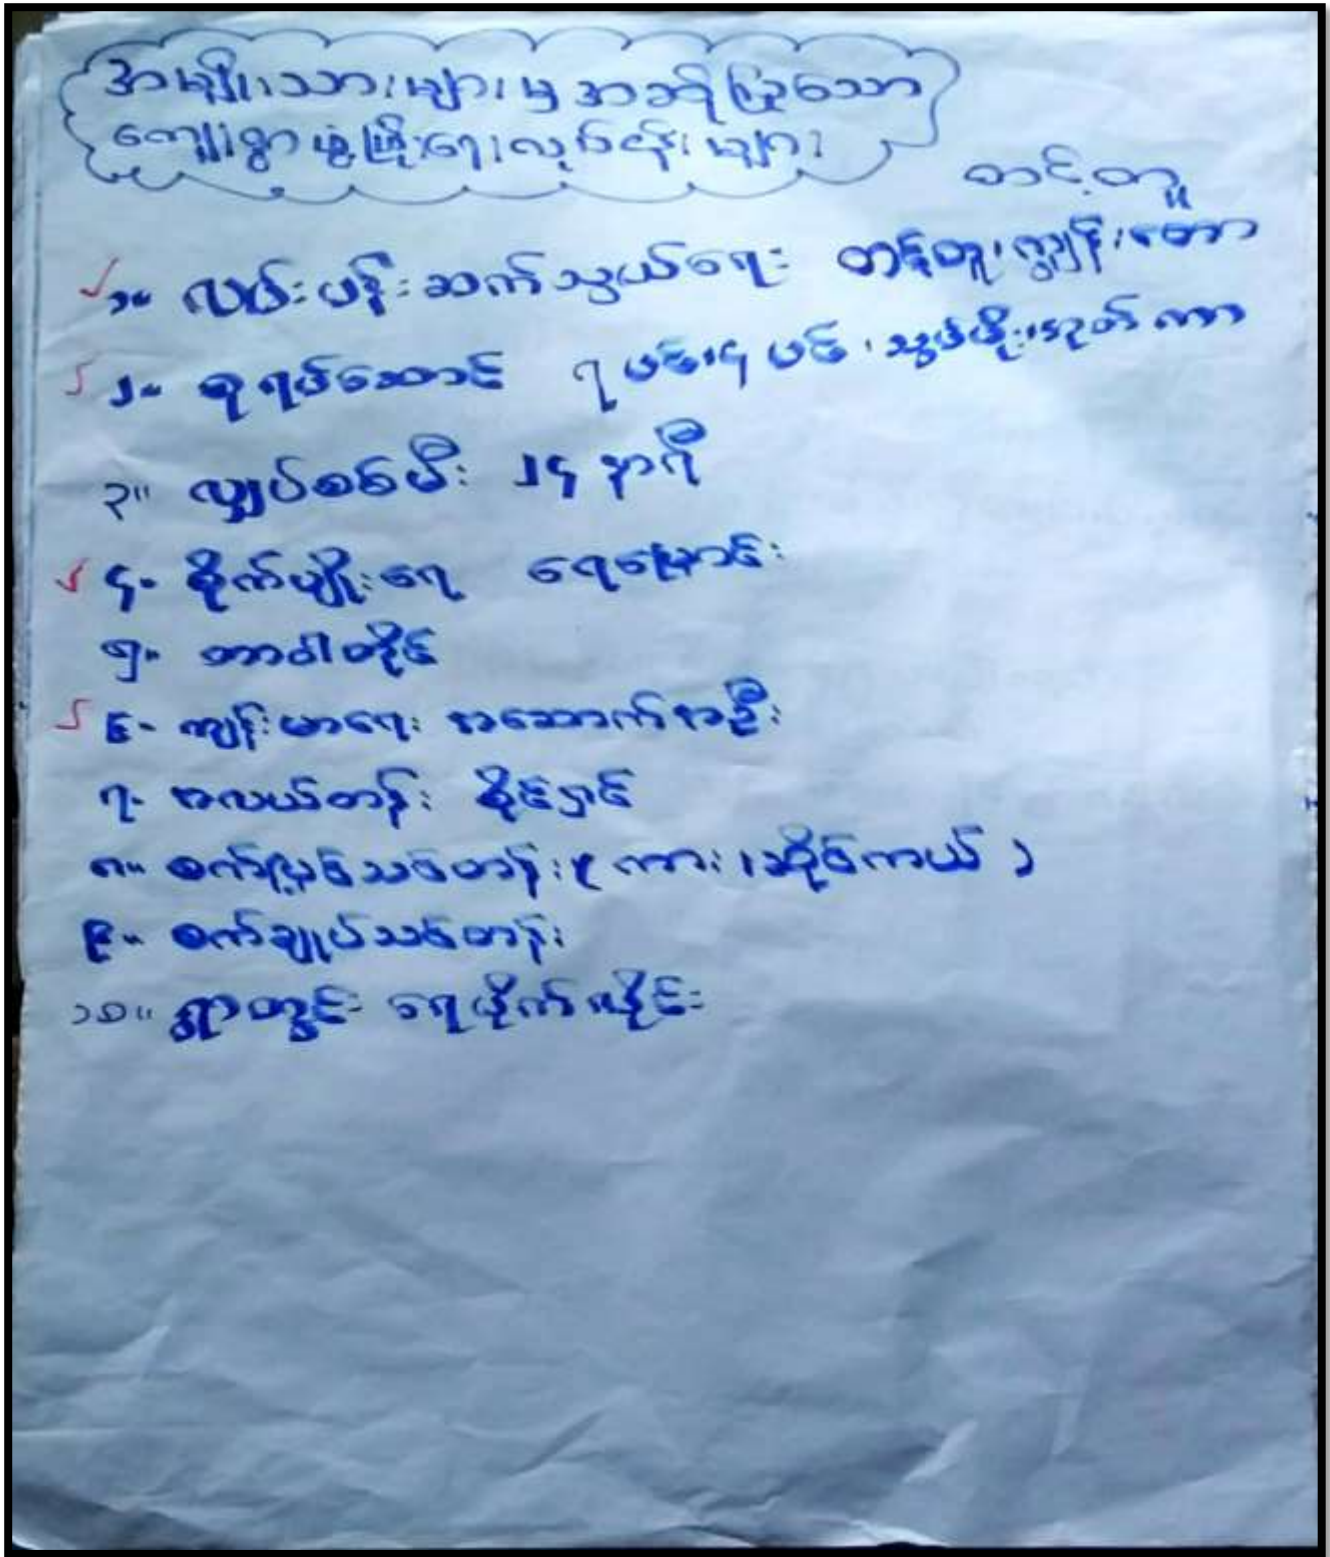 အမျိုးသားများမှ အဆိုပြုသော
ကျေးရွာဖွံ့ဖြိုးရေးလုပ်ငန်းများ
တင့်တူ
၁။ လမ်းပန်းဆက်သွယ်ရေး တင့်တူ၊ ကျွန်းတော
၂။ စုရပ်ဆောင် ၇ ပင်၊ ၄ ပင် ၊ သွပ်မိုး၊ အုတ်ကာ
၃။ လျှပ်စစ်မီး ၂၄ နာရီ
၄။ စိုက်ပျိုးရေ ရေမြောင်း
၅။ တာဝါတိုင်
၆။ ကျန်းမာရေး အဆောက်အဦး
၇။ အလယ်တန်း စိုင်ရှင်
၈။ စက်ပြင်သင်တန်း ( ကား၊ ဆိုင်ကယ် )
၉။ စက်ချုပ်သင်တန်း
၁၀။ ရွာတွင်း ရေပိုက်လိုင်း